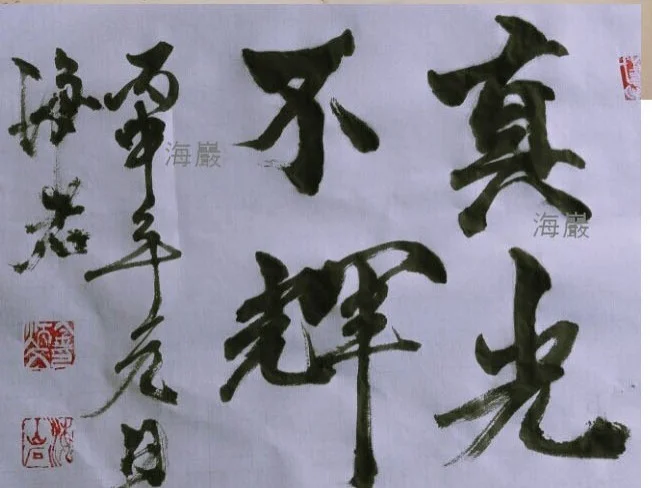 真光
不輝
丙申年元日
海岩
海巖
海巖